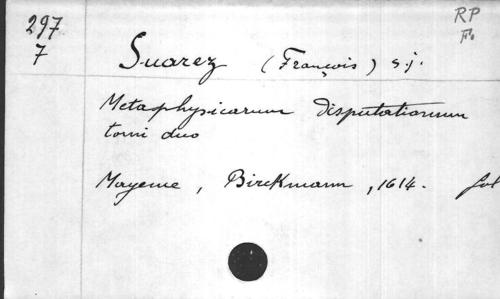 297
7
RP
Fo
Suarez (François) s.j.
Metaphysicarum disputationum
tomi duo
Mayence, Birckmann, 1614. fol